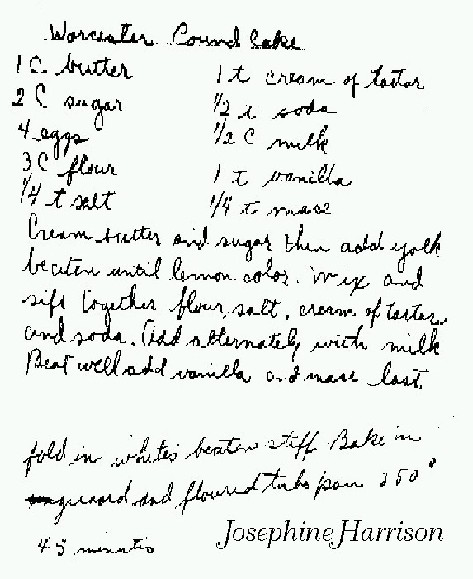 Worcester Pound Cake
1 C butter
2 C sugar
4 eggs
3 C flour
1/4 t salt
1 t cream of tartar
1/2 t soda
1/2 C milk
1 t vanilla
1/4 t mace
Cream butter and sugar then add yolk
beaten until lemon color. Mix and
sift together flour, salt, cream of tartar,
and soda. Add alternately with milk
Beat well add vanilla and mace last.
fold in whites beaten stiff Bake in
and floured tube pan 350°
45 minutes
Josephine Harrison